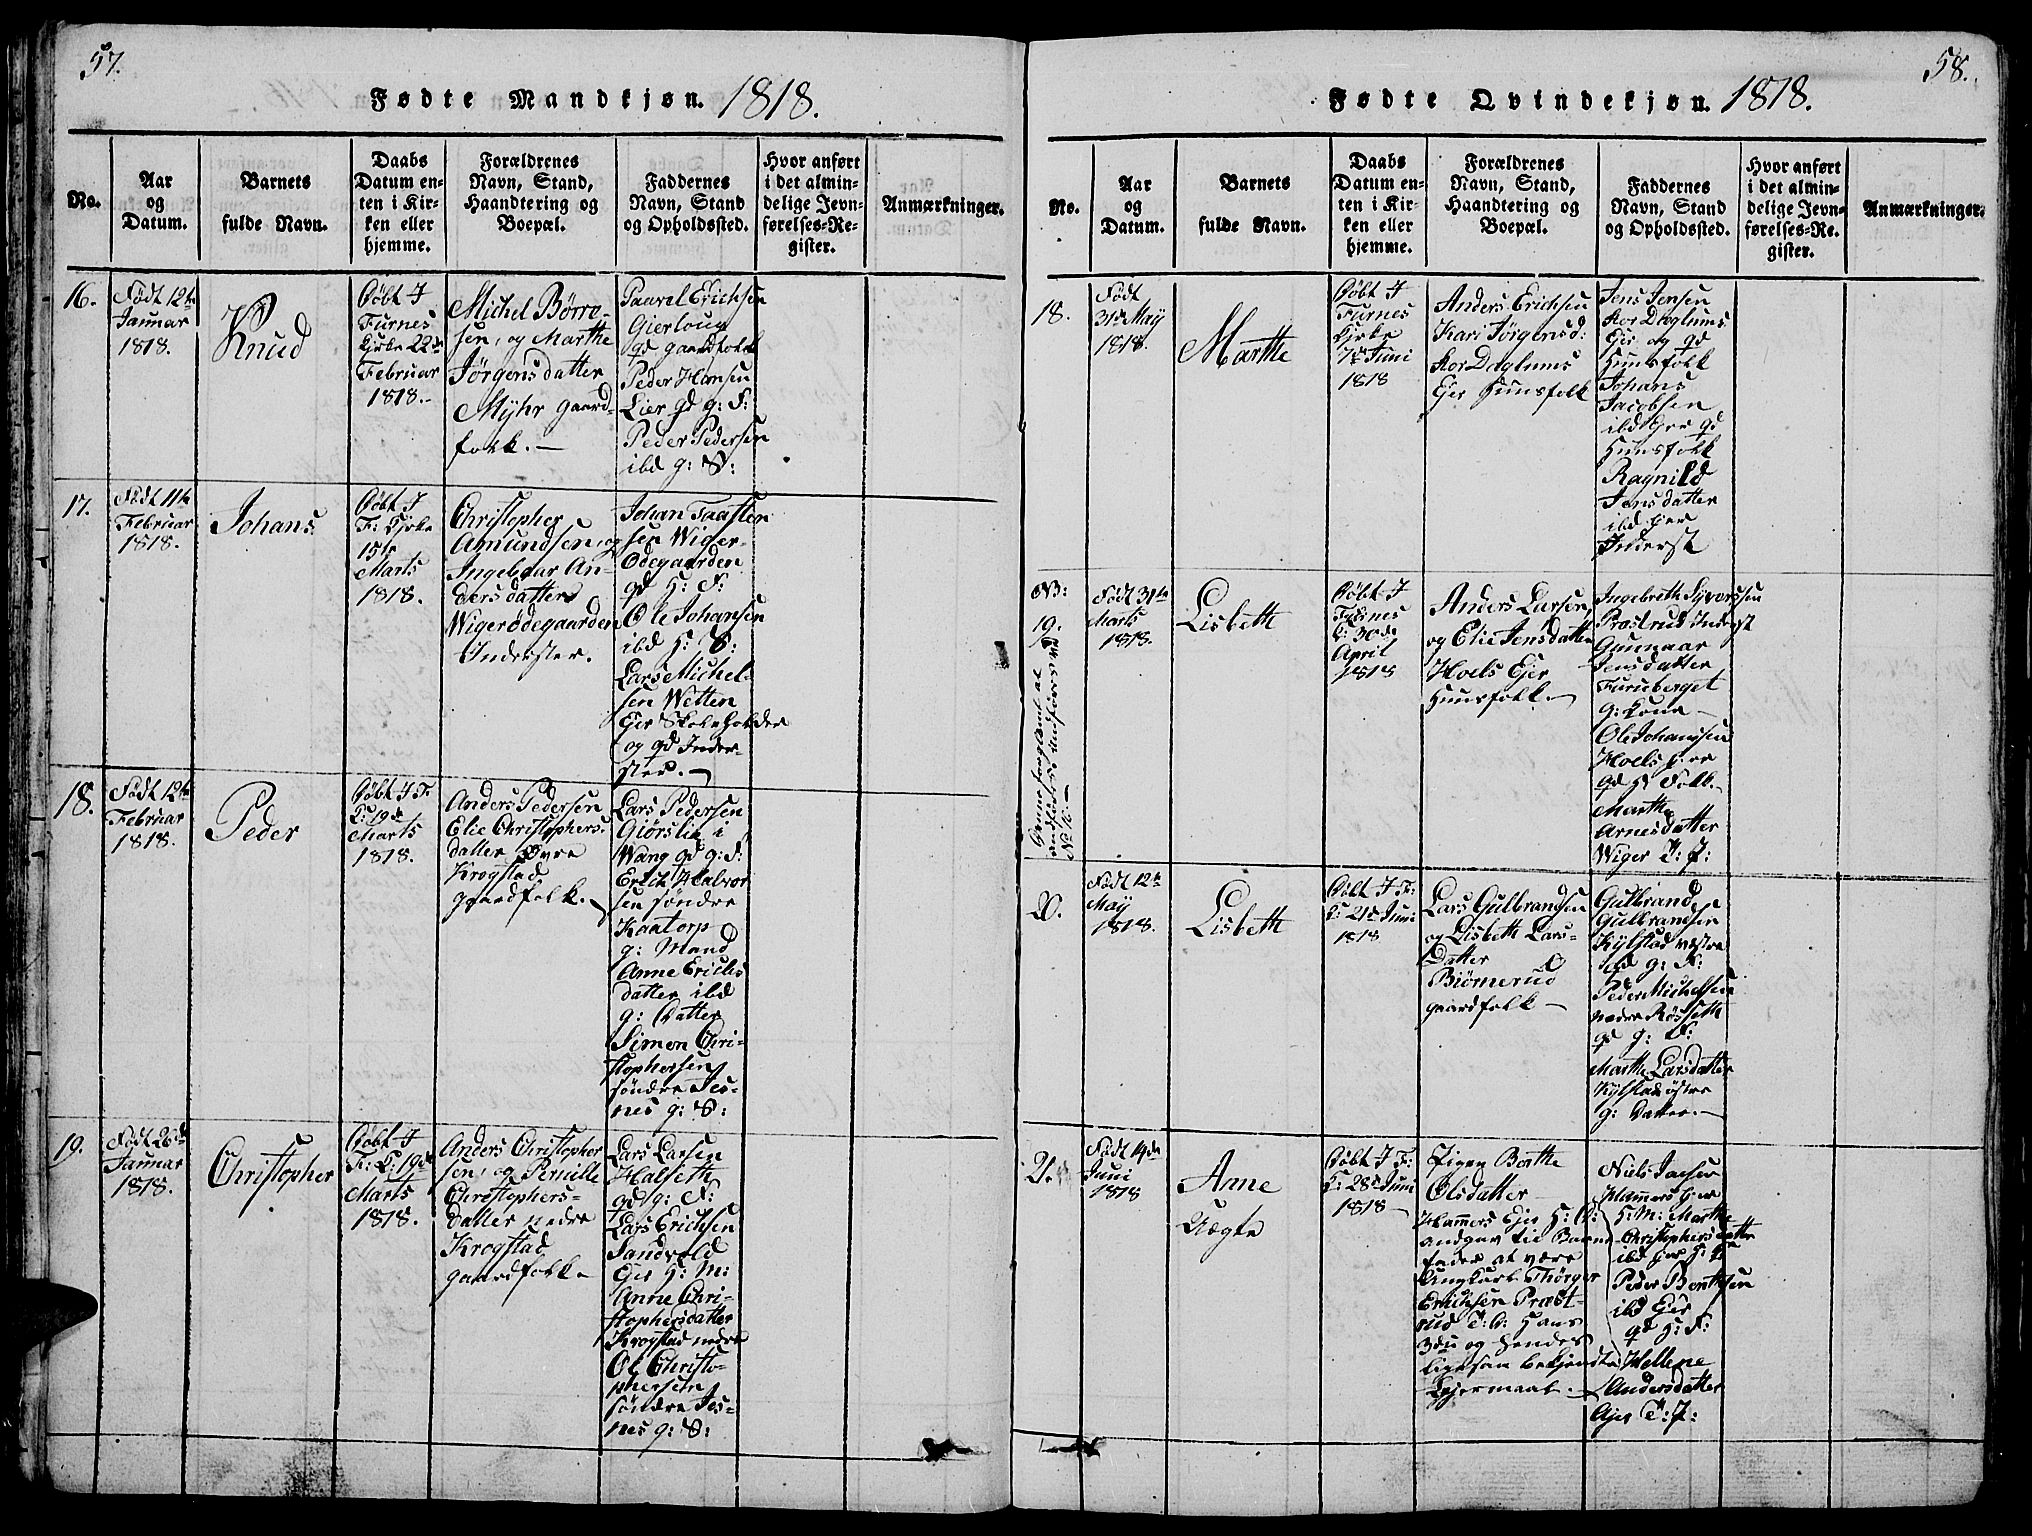 57.
Fødte Mandkjøn. 1818.
No.
Aar
og
Datum.
Barnets
fulde Navn.
Daabs
Datum en-
ten i Kir-
ken eller
hjemme.
Forældrenes
Navn, Stand,
Haandtering og
Boepæl.
Faddernes
Navn, Stand
og Opholdssted.
Hvor anført
i det almin-
delige Jevn-
førelses-Re-
gister.
Anmærkninger.
16.
Født 12te
Januar
1818.
Knud
Døbt I
Furnes
Kirke 22de
Februar
1818.-
Michel Børre-
sen, og Marthe
Jørgensdatter
Myhr gaard-
folk.-
Paavel Erichsen
Gierloug
gd gaardfolk
Peder Hansen
Lier gd g: F:
Peder Pedersen
ibd g: S:
17.
Født 11te
Februar
1818.
Johans
Døbt I
F: Kirke
15te
Marts
1818.
Christopher
Amundsen, og
Ingeboar An-
dersdatter
Wigerødegaarden
Inderster.
Johan Taasten
sen Wiger-
Ødegaarden
gd H: F:
Ole Johansen
ibd H: S:
Lars Michel-
sen Wetten
Eier Skoleholder
og gd Inder-
ster.-
18.
Født 12te
Februar
1818.
Peder
Døbt I F:
K: 19de
Marts
1818.
Anders Pedersen
Elie Christophers-
datter øvre
Krogstad
gaardfolk.-
Lars Pedersen
Giørslie i
Wang gd g: F:
Erich Halvor
sen søndre
Kaatorp
g: Mand
Anne Erichs
datter ibd
g: Datter
Simon Chri-
stophersen
søndre Jes-
nes g: S:
19.
Født 26de
Januar
1818.
Christopher
Døbt I
F: K: 19de
Marts
1818.
Anders Christopher
sen, og Pernille
Christophers-
datter nedre
Krogstad
gaardfolk-
Lars Larsen
Halseth
gd g: F:
Lars Erichsen
Sandvold
Eier H: M:
Anne Chri-
stophersdatter
Krogstad nedre
Ole Christo-
phersen
søndre Jes-
nes g: S:
58.
Fødte Qvindekjøn. 1818.
No.
Aar
og
Datum.
Barnets
fulde Navn.
Daabs
Datum en-
ten i Kir-
ken eller
hjemme.
Forældrenes
Navn, Stand,
Haandtering og
Boepæl.
Faddernes
Navn, Stand
og Opholdssted.
Hvor anført
i det almin-
delige Jevn-
førelses-Re-
gister.
Anmærkninger.
18.
Født
31de May
1818.
Marthe
Døbt I
Furnes
Kirke
7de Juni
1818
Anders Erichsen
Kari Jørgensd:
Stor Daglums
Eier Huusfolk
Jens Jensen
Stor Daglums
Eier og gd
Huusfolk
Johans
Jacobsen
ibd Eier gd
Huusfolk
Ragnild
Jensdatter
ibd Eier
Inderst
NB:
19.
Født 31te
Marts
1818.
Lisbeth
Døbt I
Furnes
K: 30de
April
1818
Anders Larsen
og Elie Jensdatter
Hoels Eier
Huusfolk.-
Ingebreth Syversen
Prostrud Inderst
Gunnaar
Jensdatter
Furuberget
g: Kone-
Ole Johansen
Hoels Eier
gd H: Folk.-
Marthe
Arnesdatter
Wiger T: P:
20.
Født 12te
May
1818.
Lisbeth
Døbt I F:
K: 21de Juni
1818
Lars Gulbrandsen
og Lisbeth Lars-
Datter
Biømerud
gaardfolk-
Gulbrand
Gulbrandsen
Kylstad vestre
gd g: F:
Peder Michelsen
nedre Røsseth
gd g: F:
Marthe Larsdatter
Kylstad østre
g: Datter.-
21.
Født 14de
Juni
1818
Anne
Uægte
Døbt I F:
K: 28de Juni
1818-
Pigen Berthe
Olsdatter
Hammers Eier H: D:
andgav til Barne-
fader at være
Ungkarl Thorger
Erichsen Præst-
rud T: D: Hans
3die og hendes
ligesom bekjendte
Leiermaal.-
Niels Jensen
Hammers Eier
H: M: Marthe
Christophersdatter
ibd Eier H: K:
Peder Berthsen
ibd Eier
gd H: F:
Hellene
Andersdatter
Ajer T: P: